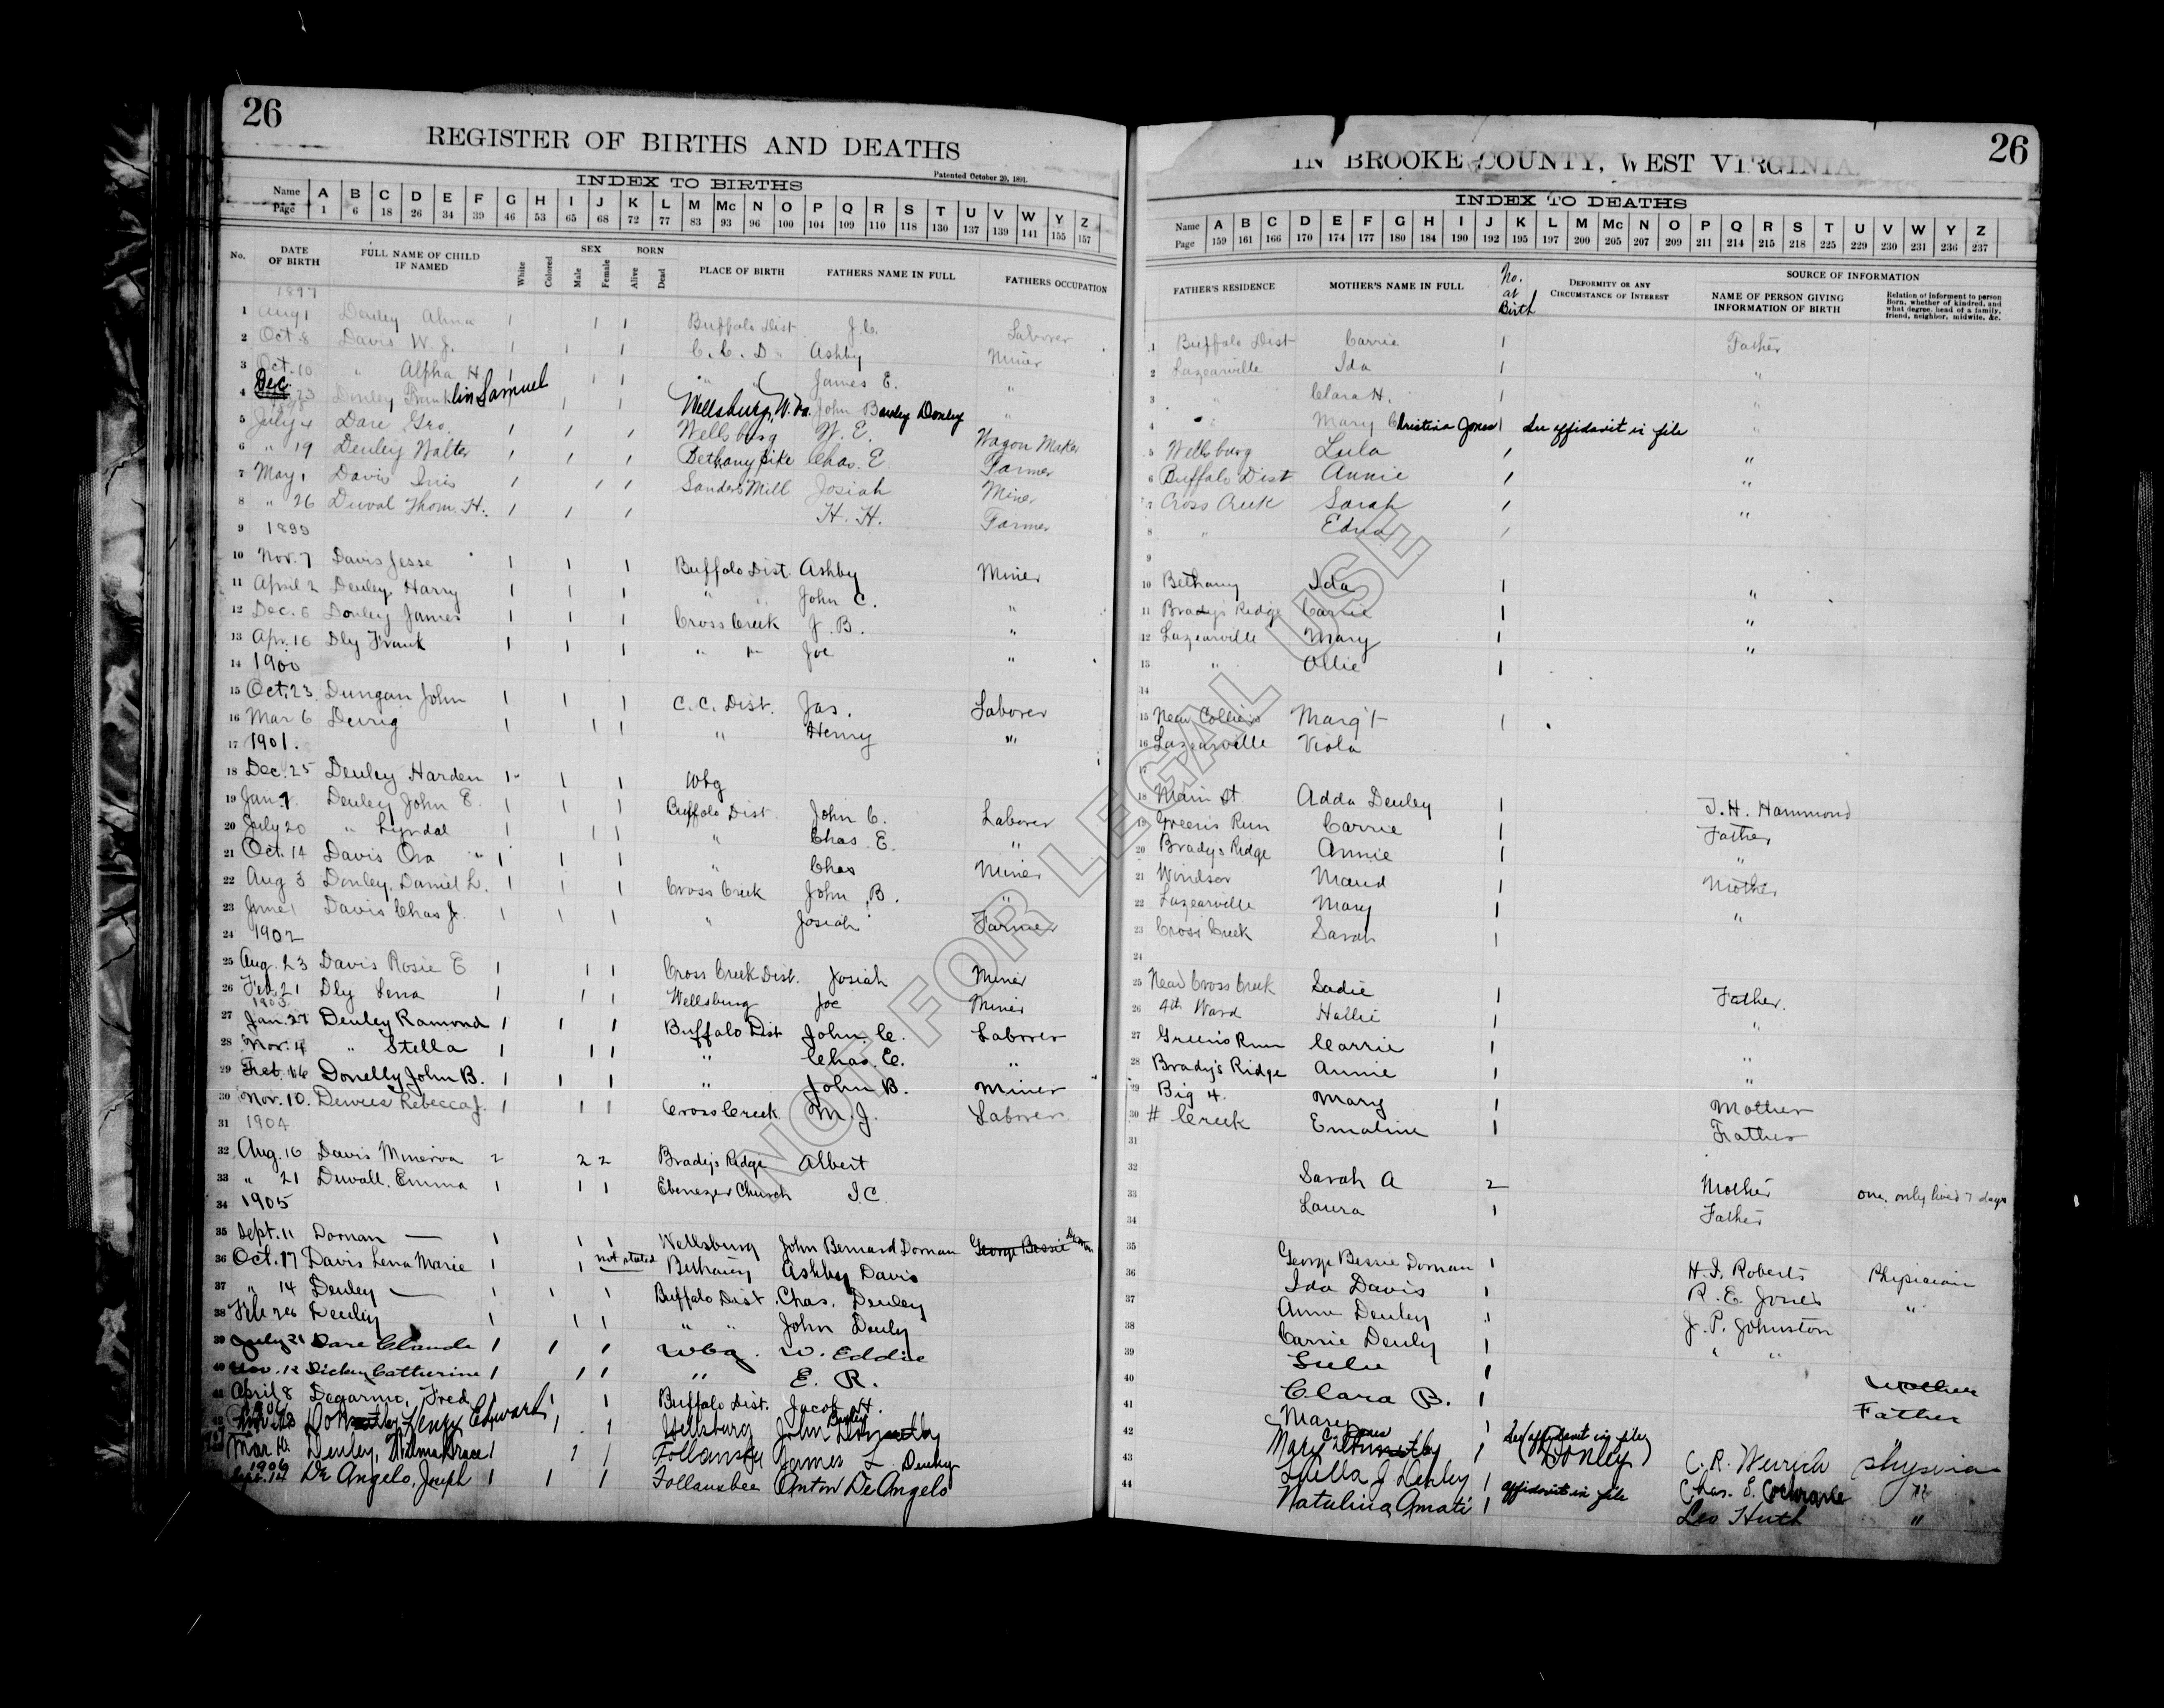 26
REGISTER OF BIRTHS AND DEATHS
Patented October 20, 1891.
INDEX TO BIRTHS
Name A B C D E F G H I J K L M Mc N O P Q R S T U V W Y Z
Page 1 6 18 26 34 39 46 53 65 68 72 77 83 93 96 100 104 109 110 118 130 137 139 141 155 157
No. DATE OF BIRTH FULL NAME OF CHILD IF NAMED White Colored SEX Male Female BORN Alive Dead PLACE OF BIRTH FATHERS NAME IN FULL FATHERS OCCUPATION
1897
1 Aug 1 Denley Alma 1 1 1 Buffalo Dist J. C. Laborer
2 Oct. 8 Davis W. J. 1 1 1 C. C. D " Ashby Miner
3 Oct. 10 " Alpha H. 1 1 1 " " James E. "
4 Dec. 23 Donley Franklin Samuel 1 1 Wellsburg, W. Va. John Donley "
1898
5 July 4 Dare Geo. 1 1 1 Wellsburg W. E. Wagon Maker
6 " 19 Denley Walter 1 1 1 Bethany pike Chas. E Farmer
7 May 1 Davis Inis 1 1 1 Sanders Mill Josiah Miner
8 " 26 Duval Thom. H. 1 1 1 H. H. Farmer
9 1899
10 Nov. 7 Davis Jesse 1 1 1 Buffalo Dist. Ashby Miner
11 April 2 Denley Harry 1 1 1 " " John C. "
12 Dec. 6 Donley James 1 1 1 Cross Creek J. B. "
13 Apr. 16 Dly Frank 1 1 1 " " Joe "
14 1900
15 Oct. 23 Dungan John 1 1 1 C. C. Dist. Jas. Laborer
16 Mar 6 Deirig 1 1 1 " Henry "
17 1901.
18 Dec. 25 Denley Harden 1 1 1 Wbg
19 Jan. 9. Denley John E. 1 1 1 Buffalo Dist. John C. Laborer
20 July 20 " Lyndal 1 1 1 " Chas. E. "
21 Oct. 14 Davis Ora 1 1 1 " Chas Miner
22 Aug 3 Donley, Daniel L. 1 1 1 Cross Creek John B. "
23 June 1 Davis Chas J. 1 1 1 " Josiah Farmer
24 1902
25 Aug. 23 Davis Rosie E 1 1 1 Cross Creek Dist. Josiah Miner
26 Feb 21 Dly Lena 1 1 1 Wellsburg Joe Miner
1903
27 Jan. 27 Denley Ramond 1 1 1 Buffalo Dist John C. Laborer
28 Nov. 4 " Stella 1 1 1 " Chas. E. "
29 Feb. 16 Donelly John B. 1 1 1 " John B. Miner
30 Nov. 10. Dewees Rebecca J. 1 1 1 Cross Creek M. J. Laborer
31 1904
32 Aug. 16 Davis Minerva 2 2 2 Bradys Ridge Albert
33 " 21 Duvall. Emma 1 1 1 Ebenezer Church I. C.
34 1905
35 Sept. 11 Dornan — 1 1 1 Wellsburg John Bernard Dornan George Bessie Dornan
36 Oct. 17 Davis Lena Marie 1 1 not stated Bethany Ashby Davis
37 " 14 Denley — 1 1 1 Buffalo Dist. Chas. Denley
38 Feb 26 Denley 1 1 1 " " John Denly
39 July 21 Dare Claude 1 1 1 Wbg. W. Eddie
40 Nov. 12 Dickey Catherine 1 1 1 " E. R.
41 April 8 Degarmo, Fred 1 1 1 Buffalo Dist. Jacob H.
1906
42 Henry Edward 1 1 Wellsburg John
43 Mar 10. Denley, Wilma Grace 1 1 1 Follansbee James L. Denley
1906
De Angelo, Joseph 1 1 1 Follansbee Anton De Angelo
26
IN BROOKE COUNTY, WEST VIRGINIA.
INDEX TO DEATHS
Name A B C D E F G H I J K L M Mc N O P Q R S T U V W Y Z
Page 159 161 166 170 174 177 180 184 190 192 195 197 200 205 207 209 211 214 215 218 225 229 230 231 236 237
FATHER'S RESIDENCE MOTHER'S NAME IN FULL No. at Birth DEFORMITY OR ANY CIRCUMSTANCE OF INTEREST SOURCE OF INFORMATION
NAME OF PERSON GIVING INFORMATION OF BIRTH Relation of informent to person Born, whether of kindred, and what degree, head of a family, friend, neighbor, midwife, &c.
1 Buffalo Dist Carrie 1 Father
2 Lazearville Ida 1 "
3 " Clara H. 1 "
4 " Mary Christina Jones 1 See affidavit in file "
5 Wellsburg Lula 1 "
6 Buffalo Dist Annie 1 "
7 Cross Creek Sarah 1 "
8 " Edna 1
9
10 Bethany Ida 1 "
11 Bradys Ridge Carrie 1 "
12 Lazearville Mary 1 "
13 " Ollie 1
14
15 Near Colliers Marg't 1
16 Lazearville Viola
17
18 Main St. Adda Denley 1 J. H. Hammond
19 Greens Run Carrie 1 Father
20 Bradys Ridge Annie 1 "
21 Windsor Maud 1 Mother
22 Lazearville Mary 1 "
23 Cross Creek Sarah 1
24
25 Near Cross Creek Sadie 1 Father.
26 4th Ward Hallie 1 "
27 Greens Run Carrie 1 "
28 Bradys Ridge Annie 1 "
29 Big 4. Mary 1 Mother
30 # Creek Emaline 1 Father
31
32 Sarah A 2 Mother one, only lived 7 days
33 Laura 1 Father
34
35 George Bessie Dornan 1 H. I. Roberts Physician
36 Ida Davis 1 R. E. Jones "
37 Anna Denley 1 J. P. Johnston
38 Carrie Denly 1 " "
39 Lulu 1
40 Clara B. 1 Mother
41 Mary 1 Father
42 Mary C. Jones 1 See (affidavit in file) (Donley) C. R. physician
43 Stella J Denley 1 Chas. E. Cochrane "
44 Natalina Amati 1 affidavit in file Leo Huth "
NOT FOR LEGAL USE